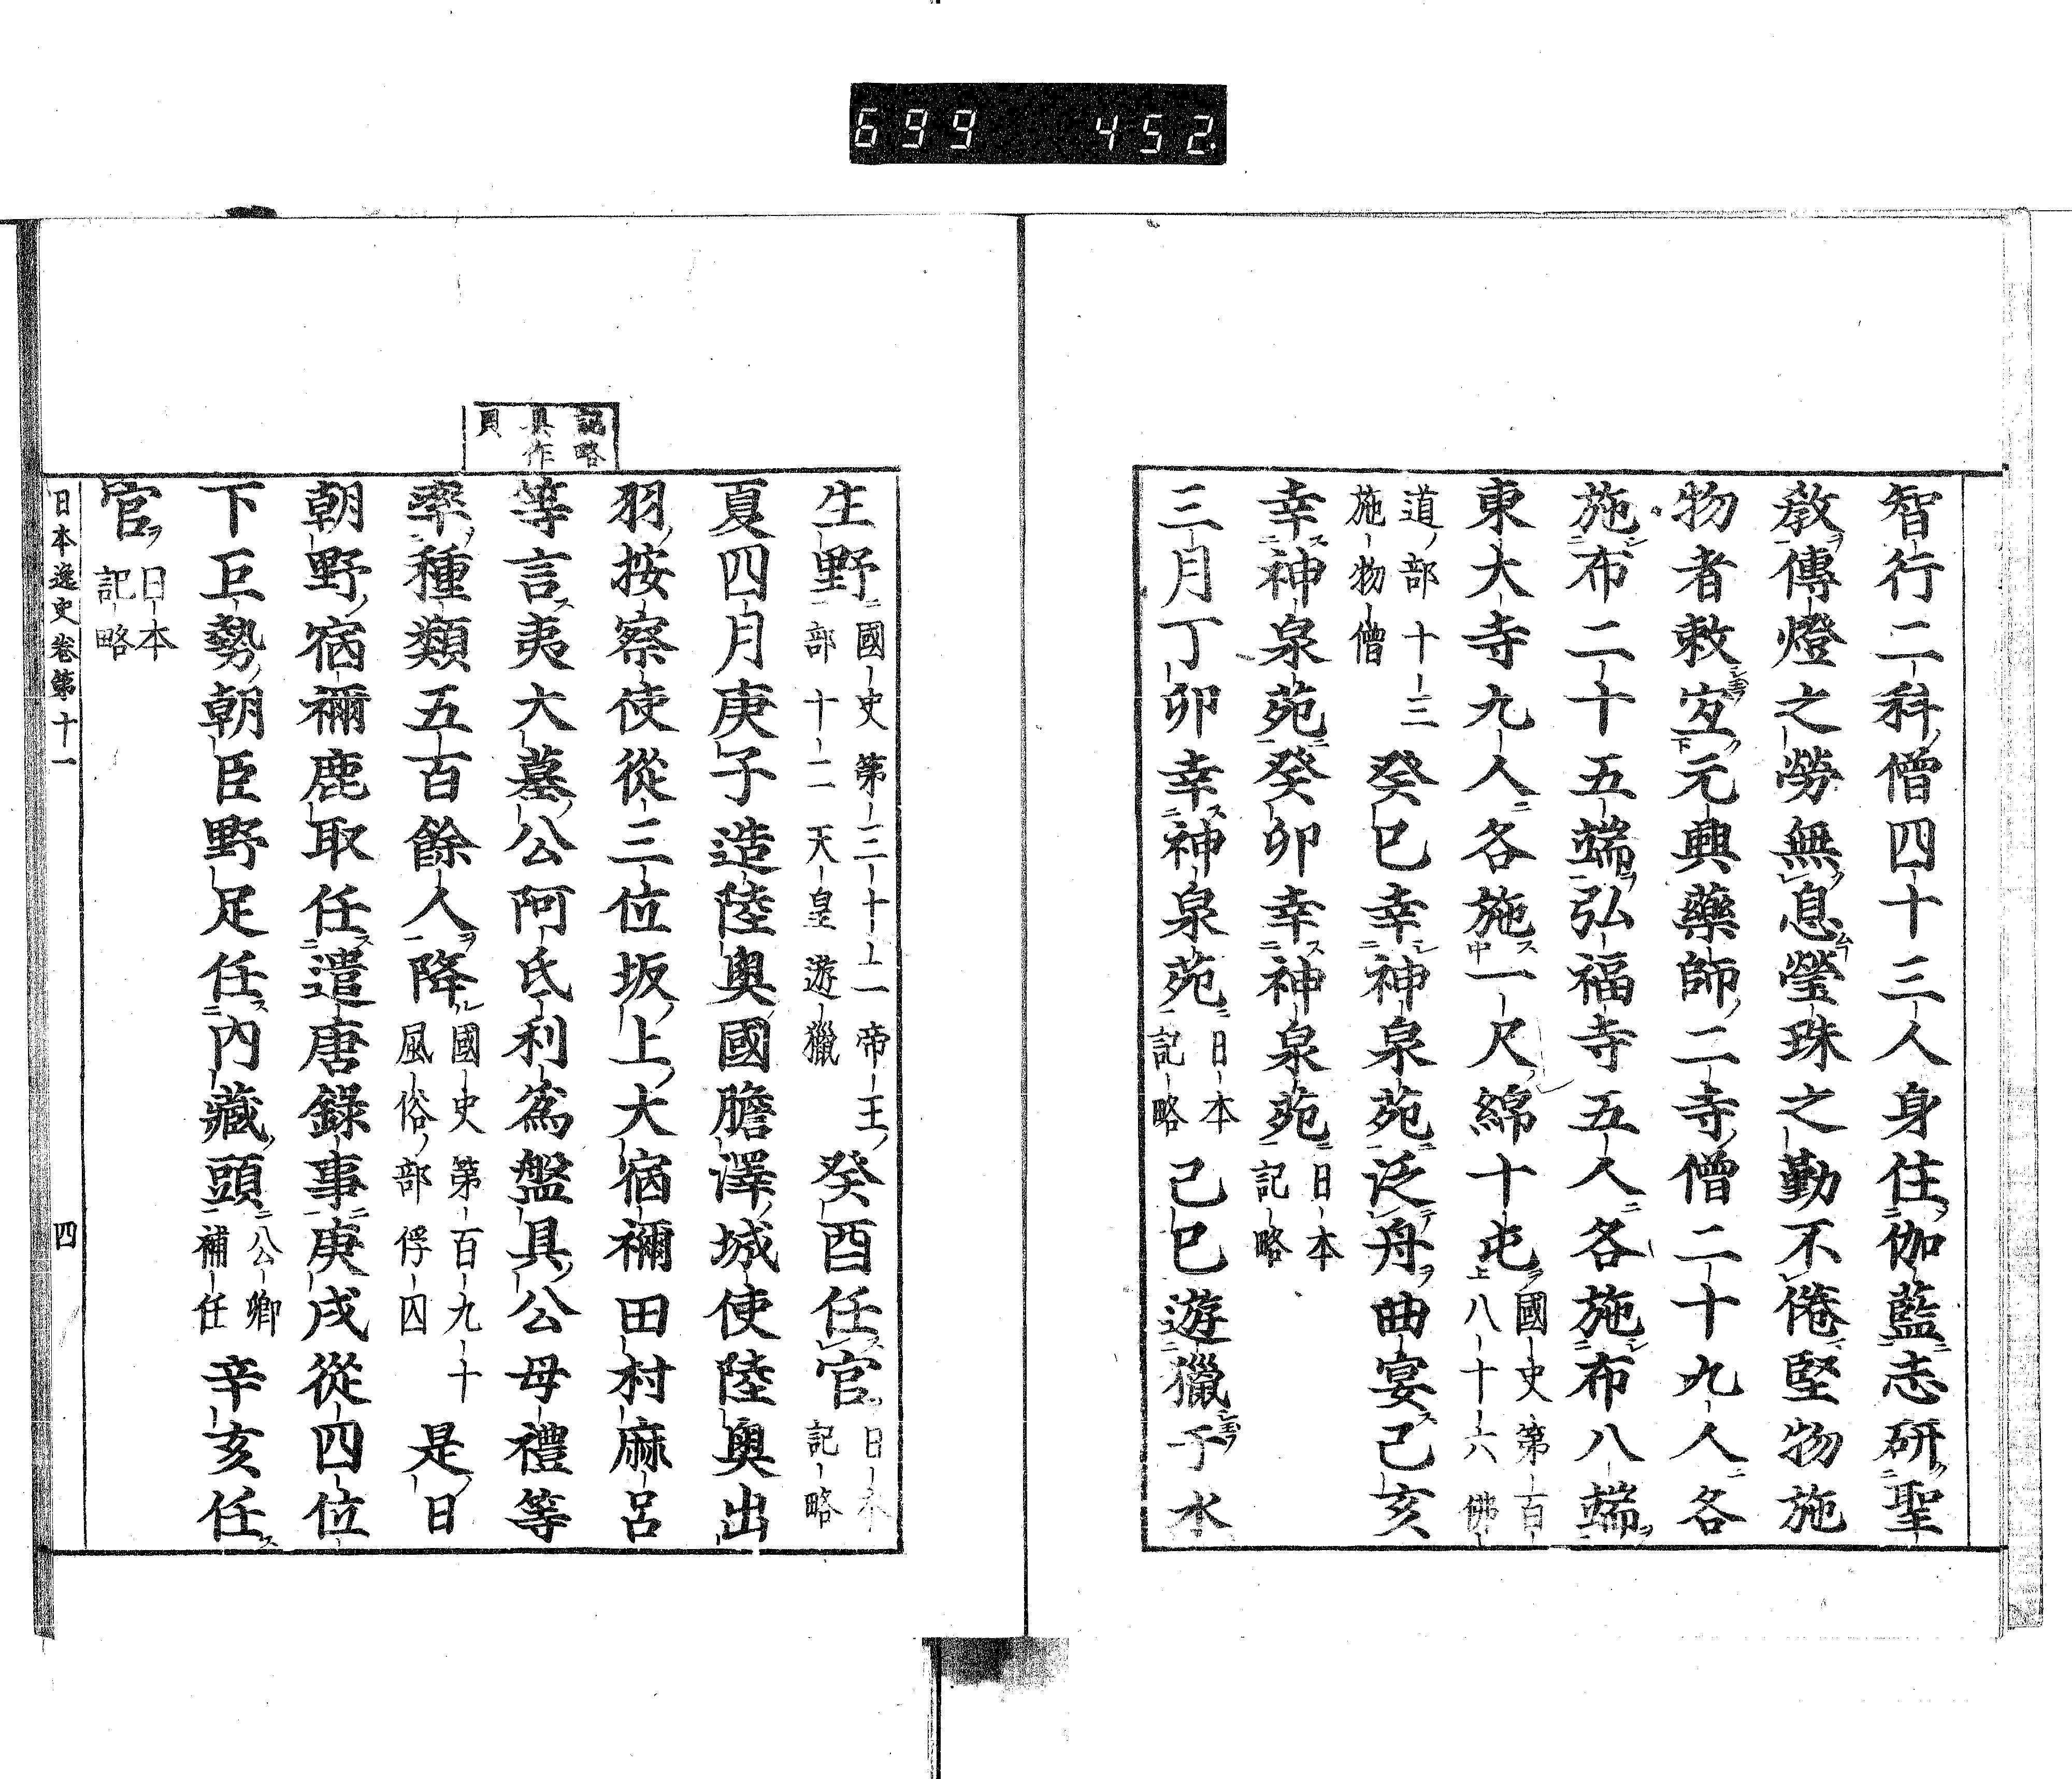 699 452
智行二科僧四十三人身住伽藍志研聖
教傳燈之勞無息瑩珠之勤不倦堅物施
物者敕宐元興藥師二寺僧二十九人各
施布二十五端弘福寺五人各施布八端
東大寺九人各施一尺綿十屯國史第百八十六佛
道部十三施物僧 癸巳幸神泉苑泛舟曲宴己亥
幸神泉苑癸卯幸神泉苑日本記略
三月丁卯幸神泉苑日本記略 己巳遊獵于水
記略
具作
貝
生野國史第三十二帝王部十二天皇遊獵 癸酉任官日本記略
夏四月庚子造陸奧國膽澤城使陸奧出
羽按察使從三位坂上大宿禰田村麻呂
等言夷大墓公阿氏利爲盤具公母禮等
率種類五百餘人降國史第百九十風俗部俘囚 是日
朝野宿禰鹿取任遣唐錄事庚戌從四位
下巨勢朝臣野足任內藏頭公卿補任 辛亥任
官日本記略
日本逸史卷第十一 四